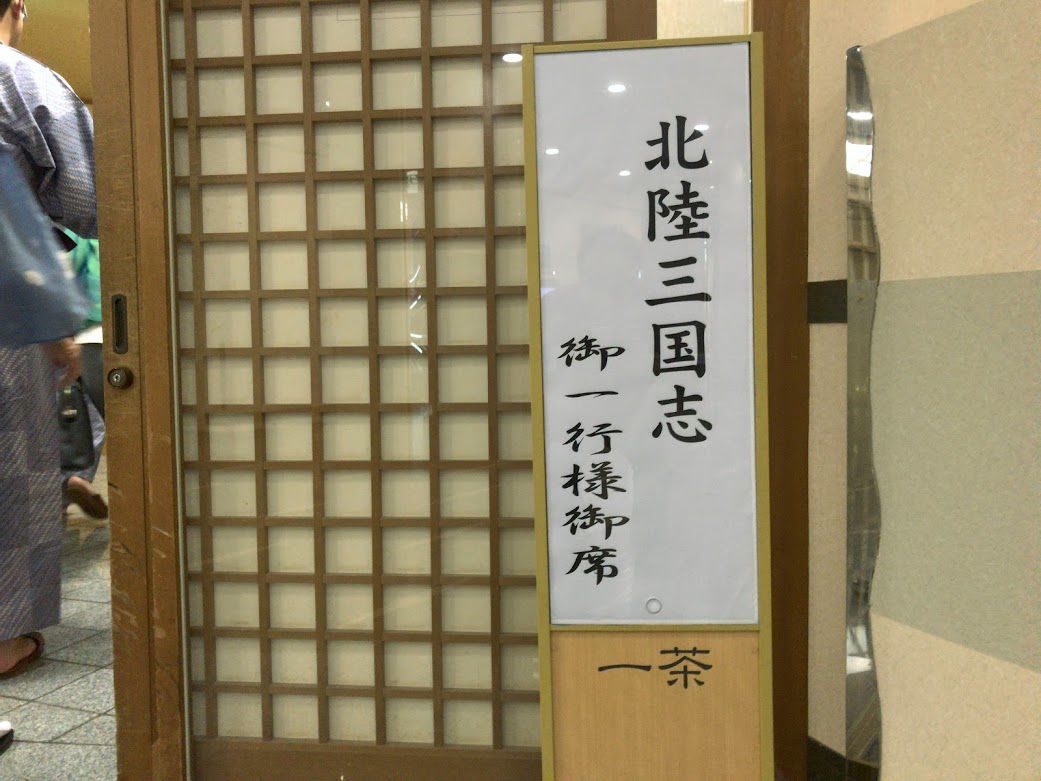 北陸三国志
御一行様御席
一茶